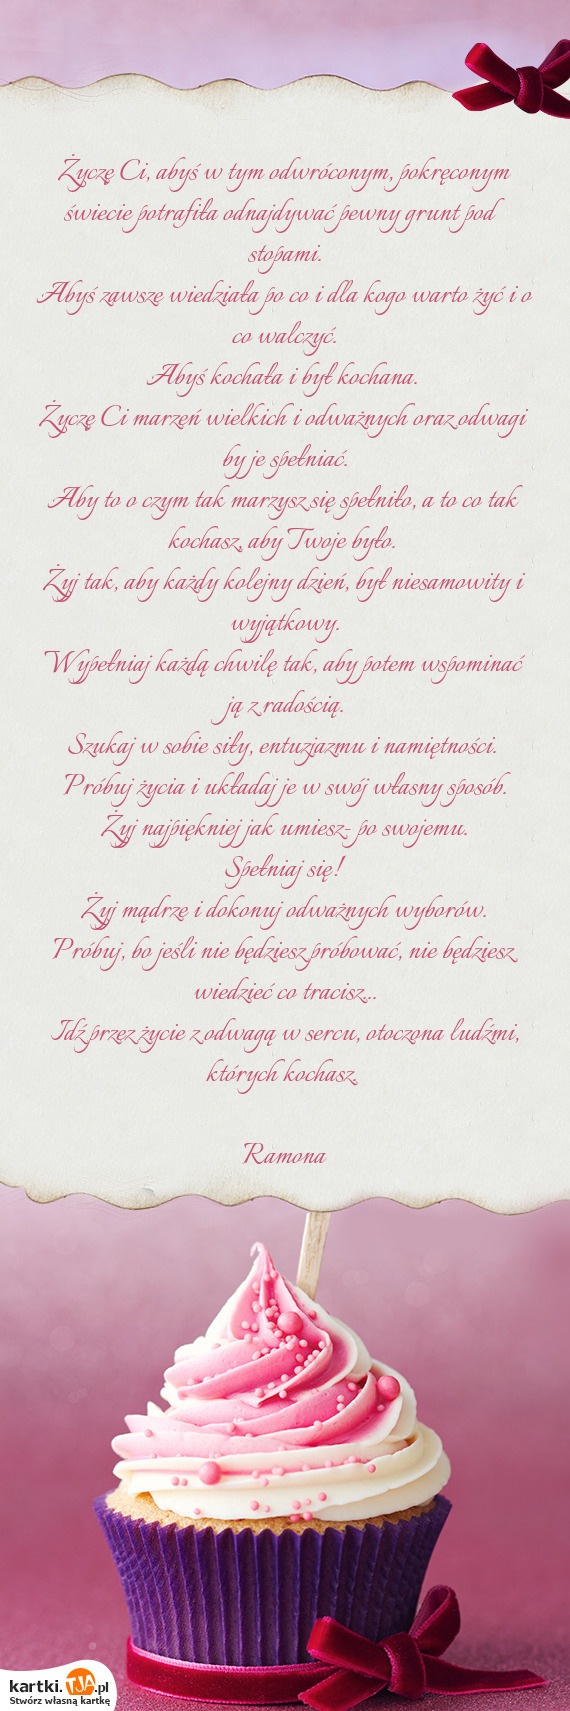 Życzę Ci, abyś w tym odwróconym, pokręconym
świecie potrafiła odnajdywać pewny grunt pod
stopami.
Abyś zawsze wiedziała po co i dla kogo warto żyć i o
co walczyć.
Abyś kochała i był kochana.
Życzę Ci marzeń wielkich i odważnych oraz odwagi
by je spełniać.
Aby to o czym tak marzysz się spełniło, a to co tak
kochasz, aby Twoje było.
Żyj tak, aby każdy kolejny dzień, był niesamowity i
wyjątkowy.
Wypełniaj każdą chwilę tak, aby potem wspominać
ją z radością.
Szukaj w sobie siły, entuzjazmu i namiętności.
Próbuj życia i układaj je w swój własny sposób.
Żyj najpiękniej jak umiesz- po swojemu.
Spełniaj się!
Żyj mądrze i dokonuj odważnych wyborów.
Próbuj, bo jeśli nie będziesz próbować, nie będziesz
wiedzieć co tracisz...
Idź przez życie z odwagą w sercu, otoczona ludźmi,
których kochasz.
Ramona
kartki.TJA.pl
Stwórz własną kartkę